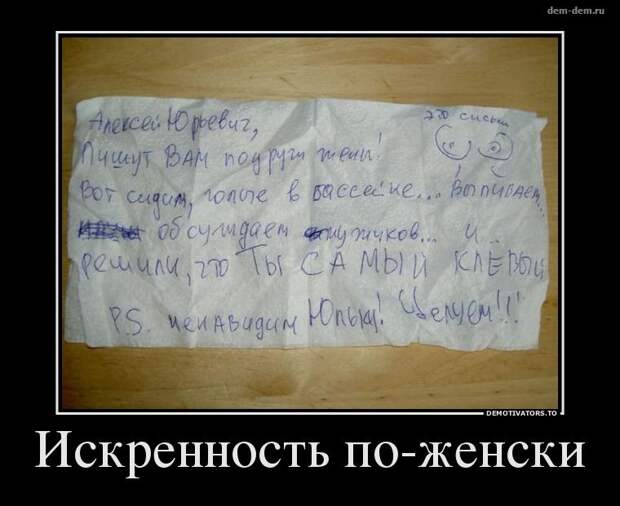 dem-dem.ru
Алексей Юрьевич,
это сиськи
Пишут ВАМ подруги жены!
Вот сидим, голые в бассейне... Выпиваем...
обсуждаем мужиков... и..
решили, что Ты САМЫЙ КЛЕВЫЙ
P.S. ненавидим Юльку! Целуем!!!
DEMOTIVATORS.TO
Искренность по-женски